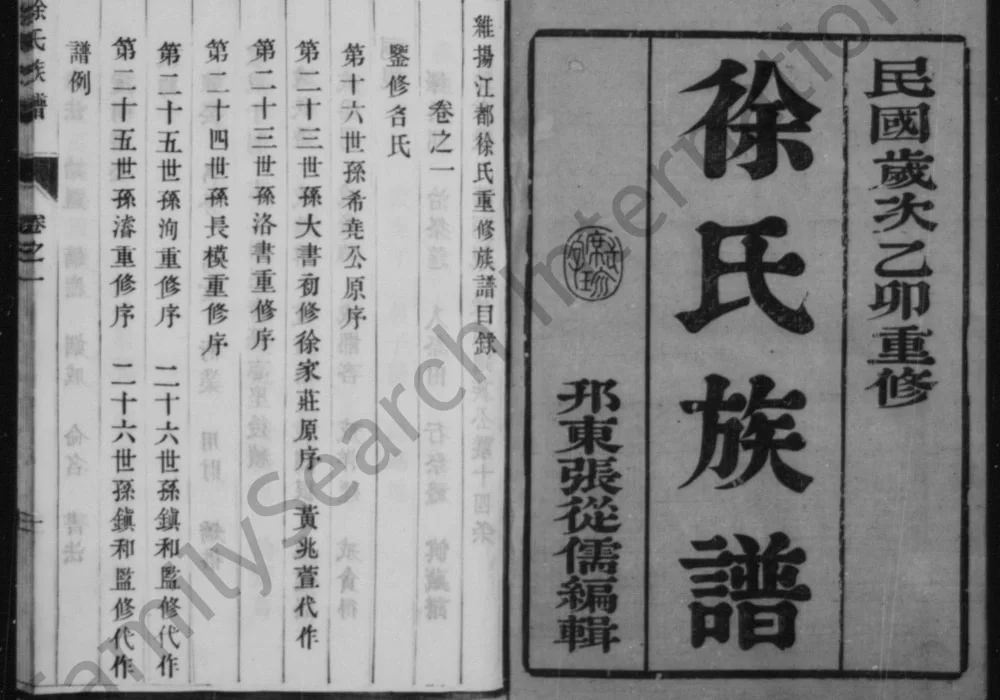 民國歲次乙卯重修
徐氏族譜
邗東張從儒編輯
維揚江都徐氏重修族譜目錄
卷之一
鑒修名氏
第十六世孫希堯公原序
第二十三世孫大書初修徐家莊原序 黃兆萱代作
第二十三世孫洛書重修序
第二十四世孫長模重修序
第二十五世孫洵重修序 二十六世孫鎮和監修代作
第二十五世孫濬重修序 二十六世孫鎮和監修代作
譜例
徐氏族譜
卷之一
一
FamilySearch International